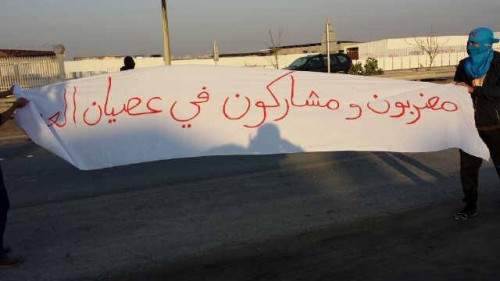 مضربون و مشاركون في عصيان